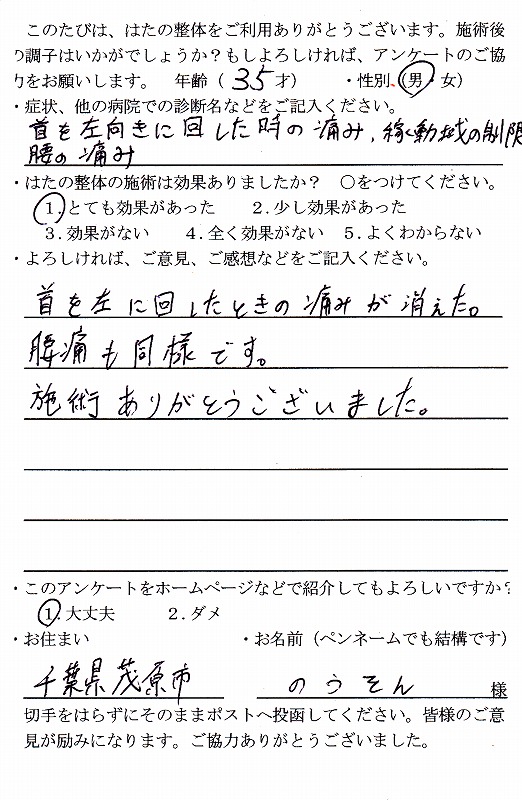 このたびは、はたの整体をご利用ありがとうございます。施術後
の調子はいかがでしょうか？もしよろしければ、アンケートのご協
力をお願いします。　年齢（ 35 才）　・性別（男・女）
・症状、他の病院での診断名などをご記入ください。
首を左向きに回した時の痛み、稼動域の制限
腰の痛み
・はたの整体の施術は効果ありましたか？　○をつけてください。
１．とても効果があった　２．少し効果があった
３．効果がない　４．全く効果がない　５．よくわからない
・よろしければ、ご意見、ご感想などをご記入ください。
首を左に回したときの痛みが消えた。
腰痛も同様です。
施術ありがとうございました。
・このアンケートをホームページなどで紹介してもよろしいですか？
１．大丈夫　２．ダメ
・お住まい　・お名前（ペンネームでも結構です）
千葉県茂原市　のうそん　様
切手をはらずにそのままポストへ投函してください。皆様のご意
見が励みになります。ご協力ありがとうございました。